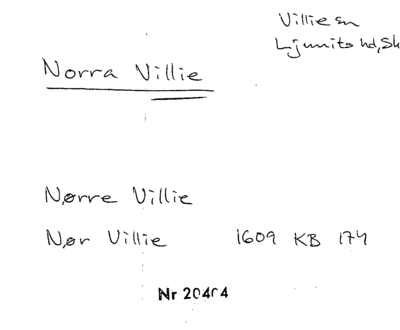 Villie sn
Ljunits hd, Sk
Norra Villie
Nørre Villie
Nør Villie 1609 KB 174
Nr 20404